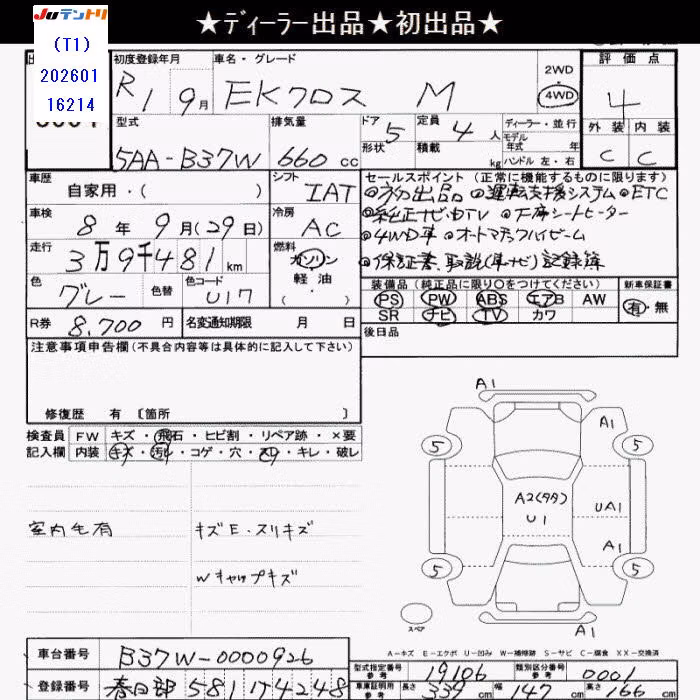 ★ディーラー出品★初出品★
Juテントリ
(T1)
202601
16214
初度登録年月
R1 9月
車名・グレード
EKクロス M
2WD
4WD
評価点
4
外装 内装
C C
型式
5AA-B37W
排気量
660 cc
ドア 5
形状
定員 4 人
積載 kg
ディーラー・並行
モデル
年式 年
ハンドル 左・右
車歴
自家用・( )
シフト
IAT
セールスポイント (正常に機能するものに限ります)
◎初出品 ◎運転支援システム ◎ETC
◎純正ナビ・TV ◎下席シートヒーター
◎4WD車 ◎オートマチックハイビーム
◎保証書、取説(車・ナビ)記録簿
車検
8年9月(29日)
冷房
AC
走行
3万9千481km
燃料
ガソリン
軽油
( ・ )
色
グレー
色替
色コード
U17
装備品 (純正品に限り○をつけてください)
PS PW ABS エアB AW
SR ナビ TV カワ
新車保証書
有・無
R券 8,700 円
名変通知期限 月 日
後日品
注意事項申告欄(不具合内容等は具体的に記入して下さい)
修復歴 有 〔箇所 〕
検査員
記入欄
FW キズ・飛石・ヒビ割・リペア跡・×要
内装 キズ・汚れ・コゲ・穴・スレ・キレ・破レ
室内毛有
キズE・スリキズ
Wキャップキズ
A1
A1
5 5
A2(タタ)
U1
UA1
A1
5 5
スペア
A1
A-キズ E-エクボ U-凹み W-補修跡 S-サビ C-腐食 XX-交換済
車台番号 B37W-0000926
型式指定番号
参考
19106
類別区分番号
参考
0001
登録番号 春日部 581 け4248
車車証明用
参考
長さ 339 cm 幅 147 cm 高さ 166 cm